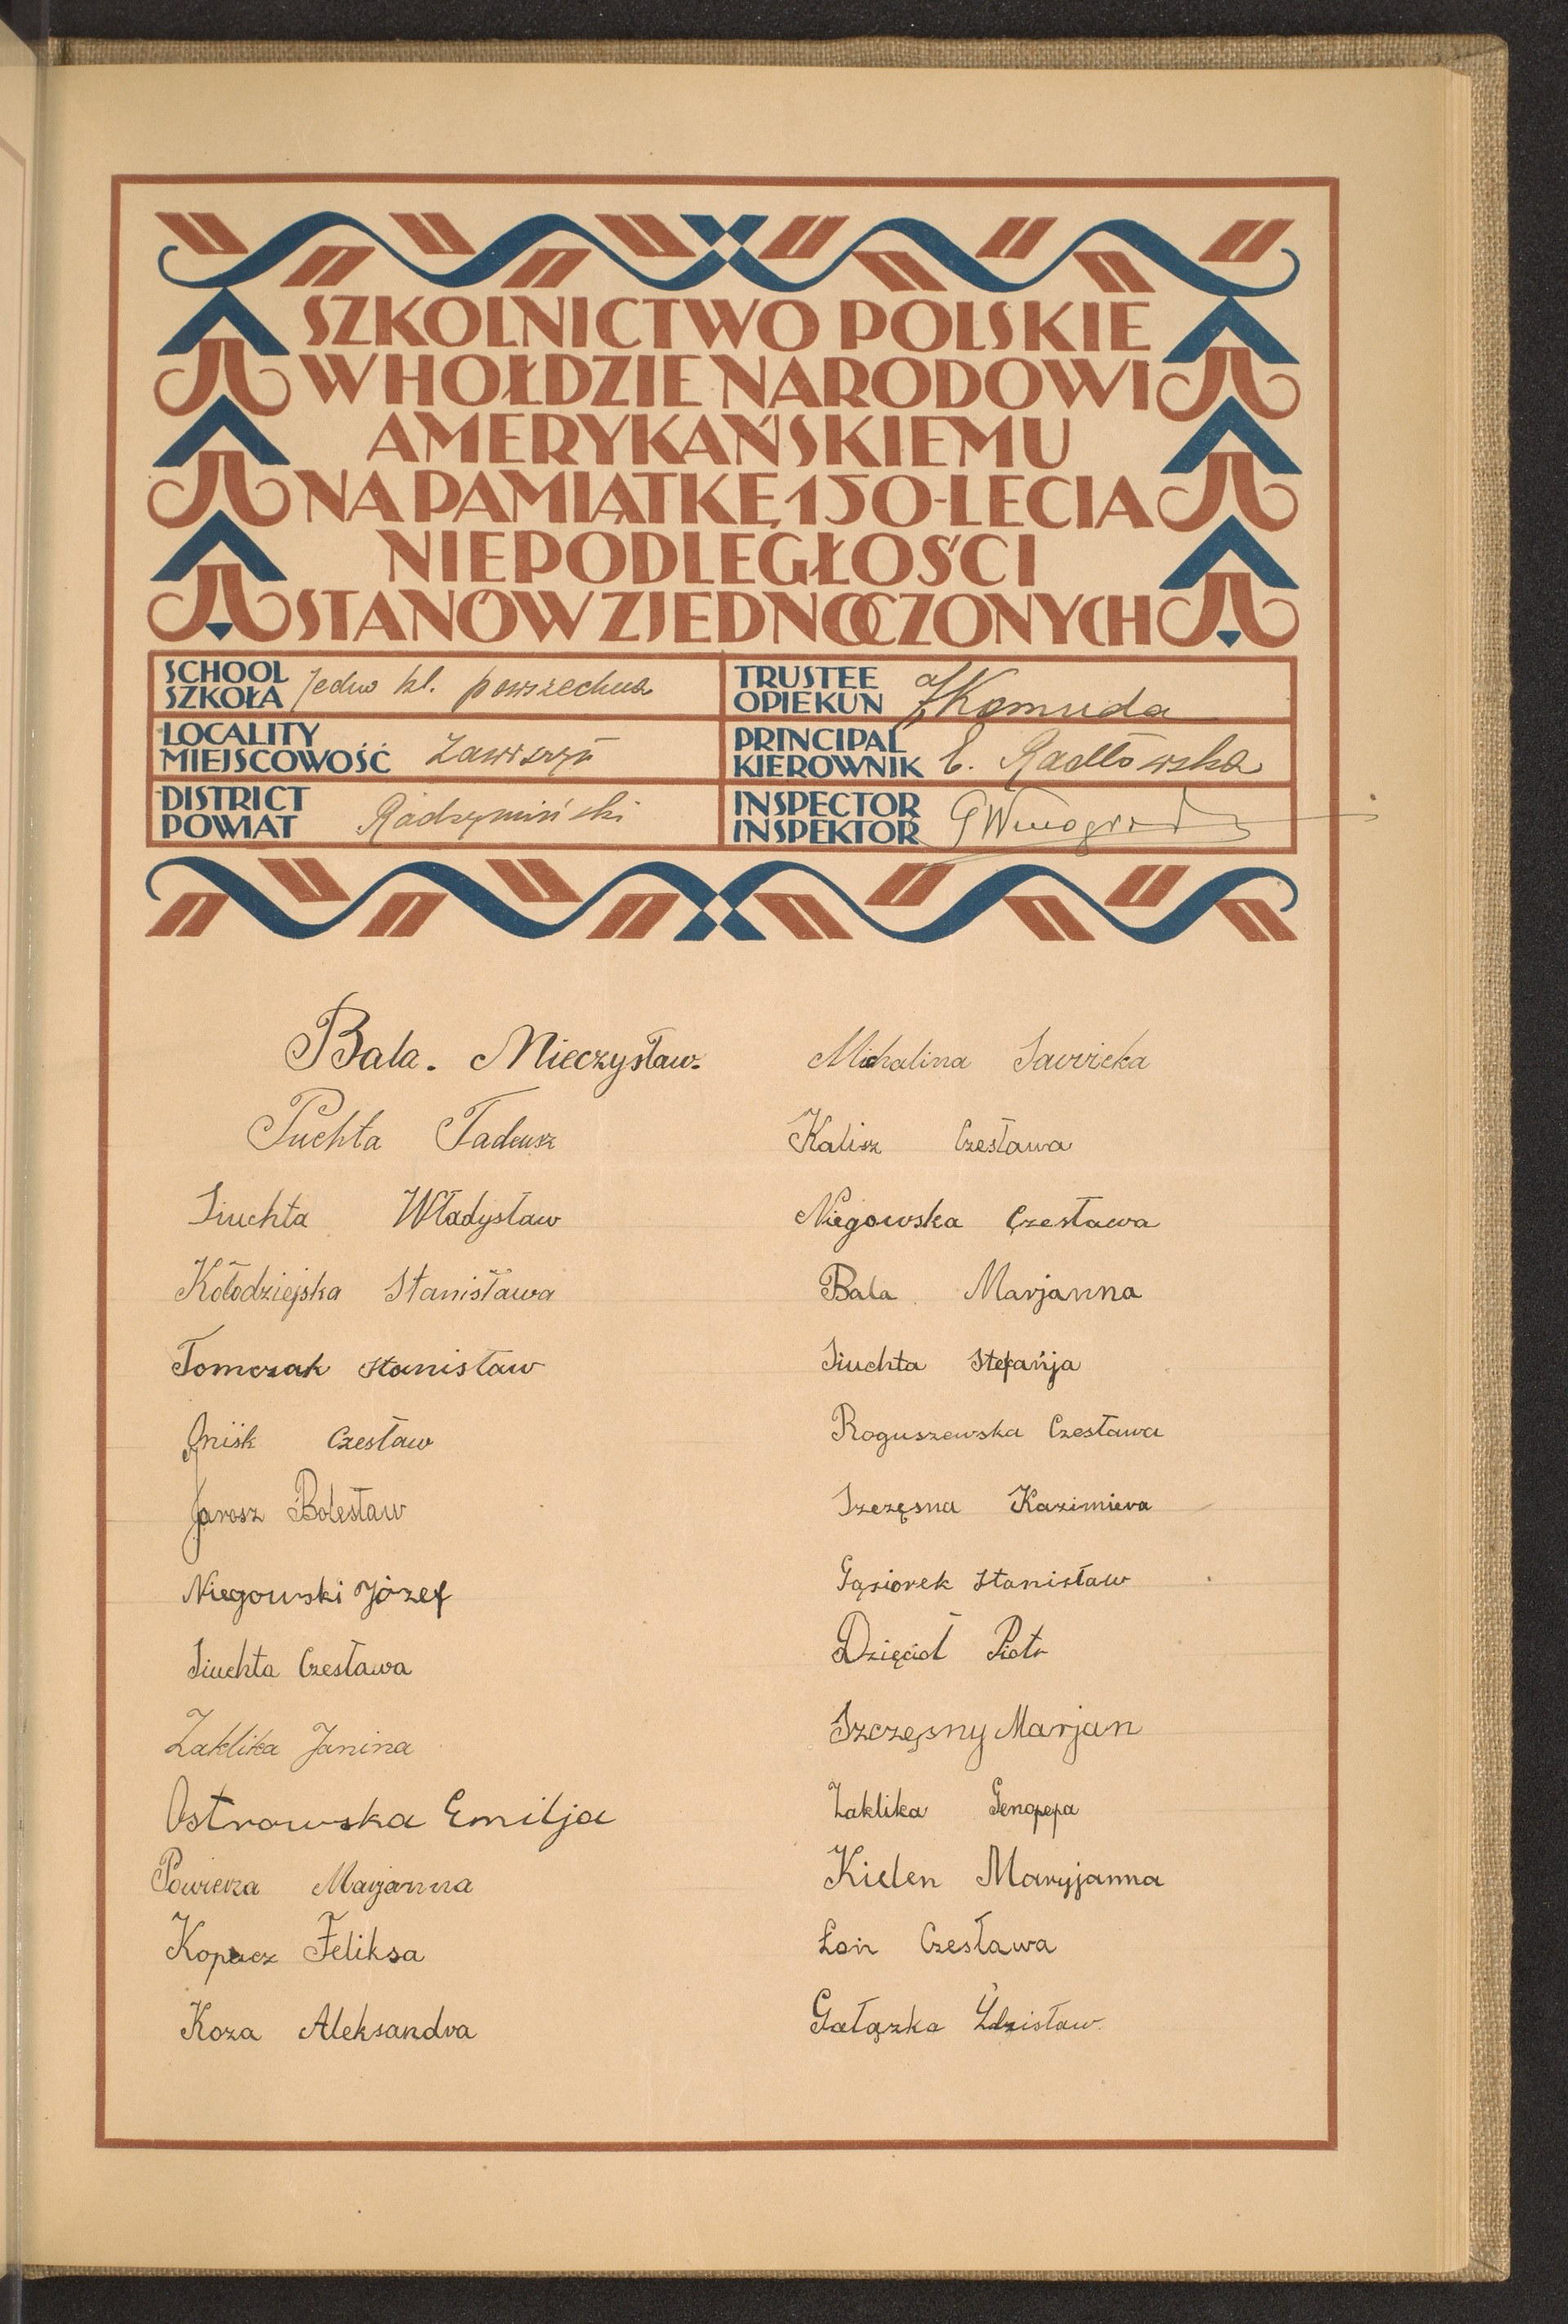 SZKOLNICTWO POLSKIE
W HOŁDZIE NARODOWI
AMERYKAŃSKIEMU
NA PAMIĄTKĘ 150-LECIA
NIEPODLEGŁOŚCI
STANÓW ZJEDNOCZONYCH
SCHOOL
SZKOŁA Jedno kl. powszechna
TRUSTEE
OPIEKUN Komuda
LOCALITY
MIEJSCOWOŚĆ
PRINCIPAL
KIEROWNIK E. Radłowska
DISTRICT
POWIAT Radzymiński
INSPECTOR
INSPEKTOR
Bala. Mieczysław.
Puchta Tadeusz
Siuchta Władysław
Kołodziejska Stanisława
Tomczak Stanisław
Onisk Czesław
Jarosz Bolesław
Niegowski Józef
Siuchta Czesława
Zaklika Janina
Ostrowska Emilja
Powierza Marjanna
Kopacz Feliksa
Koza Aleksandra
Michalina Sawicka
Kalisz Czesława
Niegowska Czesława
Bala Marjanna
Siuchta Stefanja
Roguszewska Czesława
Szczęsna Kazimiera
Gąsiorek Stanisław
Dzięcioł Piotr
Szczęsny Marjan
Zaklika Genofefa
Kielen Maryjanna
Łon Czesława
Gałązka Zdzisław.